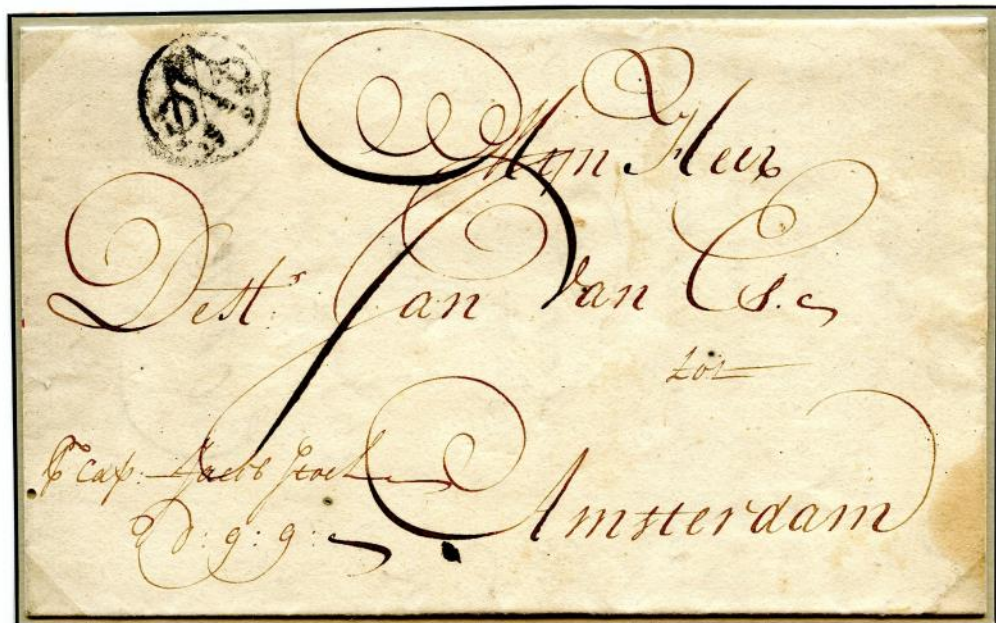 Mijn Heer
De Hr. Jan Van Es.
tot
Amsterdam
P Cap: Jacob
D: g: g: